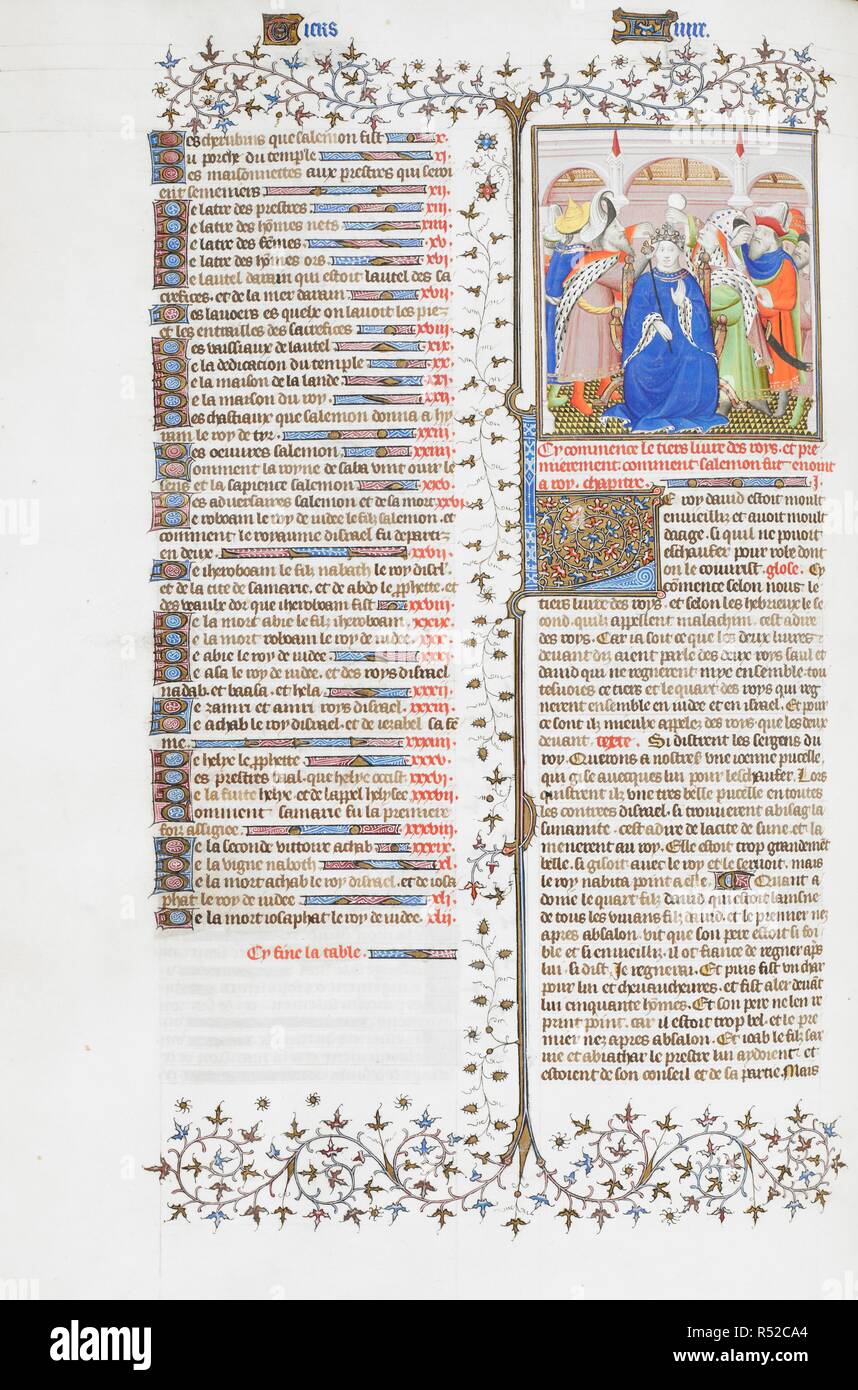 Tiers
liure.
es cherubins que salemon fist x.
u porche du temple xi.
es maisonnettes aux prestres qui seroi
ent semeniers xii.
e latre des prestres xiii.
e latre des hōmes nets xiiii.
e latre des fēmes xv.
e latre des hōmes ors xvi.
e lautel darain qui estoit lautel des sa
crefices. et de la mer darain xvii.
es lauoers es quelx on lauoit les piez
et les entrailles des sacrefices xviii.
es vaissiaux de lautel xix.
e la dedicacion du temple xx.
e la maison de la lande xxi.
e la maison du roy xxii.
es chastiaux que salemon donna a hy
ram le roy de tyr xxiii.
es oeuures salemon xxiiii.
omment la royne de saba vint ouir le
sens et la sapience salemon xxv.
es aduersaires salemon et de sa mort xxvi.
e roboam le roy de iudee le filz salemon. et
comment le royaume disrael fu departi
en deux xxvii.
e iheroboam le filz nabath le roy disrl'. 
et de la cite de samarie. et de abdo le ꝓphette. et
des veaulx dor que iheroboam fist xxviii.
e la mort abie le filz iheroboam xxix.
e la mort roboam le roy de iudee. xxx.
e abie le roy de iudee xxxi.
e asa le roy de iudee. et des roys disrael
nadab. et baasa. et hela xxxii.
e zamri et amri roys disrael xxxiii.
e achab le roy disrael. et de iezabel sa fē
me xxxiiii.
e helye le ꝓphette xxxv.
es prestres baal. que helye occist xxxvi.
e la fuite helye. et de lappel helysee xxxvii.
omment samarie fu la premiere
foiz assigiee xxxviii.
e la seconde vittoire achab xxxix.
e la vigne naboth xl.
e la mort achab le roy disrael. et de iosa
phat le roy de iudee xli.
e la mort iosaphat le roy de iudee. xlii.
Cy fine la table.
Cy commence le tiers liure des roys. et pre
mierement comment salemon fut enoint
a roy. chapitre. i.
E roy dauid estoit moult
enuieilli. et auoit moult
daage. si quil ne pouoit
eschaufer pour robe dont
on le couurist. glose. Cy
cōmence selon nous le
tiers liure des roys. et selon les hebrieux le se
cond. quilz appellent malachim. cest adire
des roys. Car ia soit ce que les deux liures
deuant diz aient parle des deux roys saul et
dauid qui ne regnerent mye ensemble. tou
tesuoies ce tiers et le quart des roys qui reg
nerent ensemble en iudee et en israel. Et pour
ce sont ilz mieulx appelez des roys que les deux
deuant. texte. Si distrent les sergens du
roy. Querons a nostres vne ioenne pucelle.
qui gise auecques lui pour leschaufer. Lors
quistrent ilz vne tres belle pucelle en toutes
les contrees disrael. si trouuerent abisag la
sunamite. cest adire de la cite de sune. et la
menerent au roy. Elle estoit trop grandement
belle. si gisoit auec le roy et le seruoit. mais
le roy nabita point a elle. Quant a
donie le quart filz dauid qui estoit lainsne
de tous les viuans filz dauid. et le premier nez
apres absalon. vit que son pere estoit si foi
ble et si enuieilli. il ot fiance de regner aps
lui. si dist. Je regnerai. Et puis fist vn char
pour lui et cheuaucheures. et fist aler deuāt
lui cinquante hōmes. Et son pere ne len re
print point. car il estoit trop bel. et le pre
mier nez apres absalon. Et ioab le filz sar
uie et abiathar le prestre lui aydoient. et
estoient de son conseil et de sa partie. Mais
alamy
Image ID: R52CA4
www.alamy.com